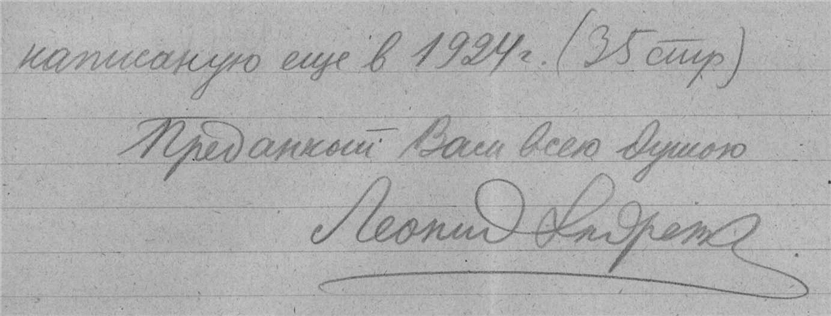 написаную еще в 1924 г. (35 стр)
Преданный Вам всею душою
Леонид